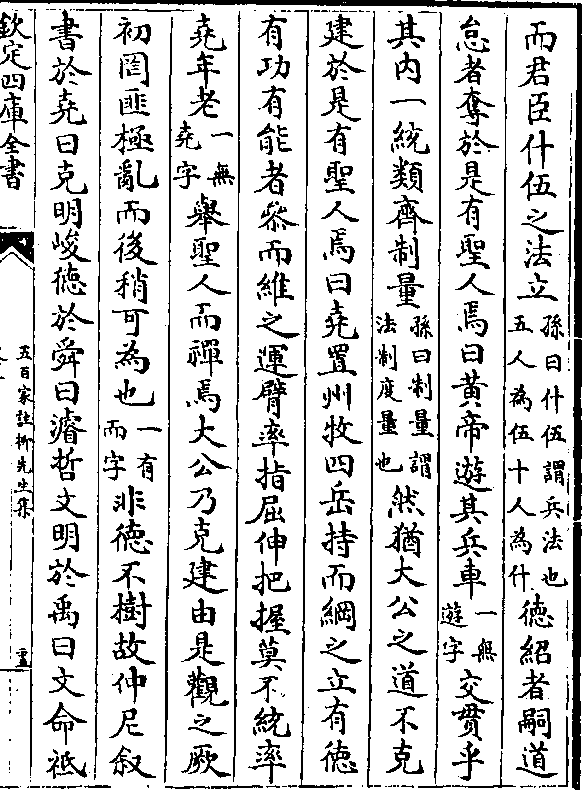 而君臣什伍之法立孫曰什伍謂兵法也五人為伍十人為什德紹者嗣道
怠者奪於是有聖人焉曰黃帝遊其兵車一無遊字交貫乎
其内一統類齊制量孫曰制量謂法制度量也然猶大公之道不克
建於是有聖人焉曰堯置州牧四岳持而綱之立有德
有功有能者參而維之運臂率指屈伸把握莫不統率
堯年老一無堯字舉聖人而禪焉大公乃克建由是觀之厥
初罔匪極亂而後稍可為也一有而字非德不樹故仲尼叙
書於堯曰克明峻德於舜曰濬哲文明於禹曰文命祗
欽定四庫全書
五百家註柳先生集